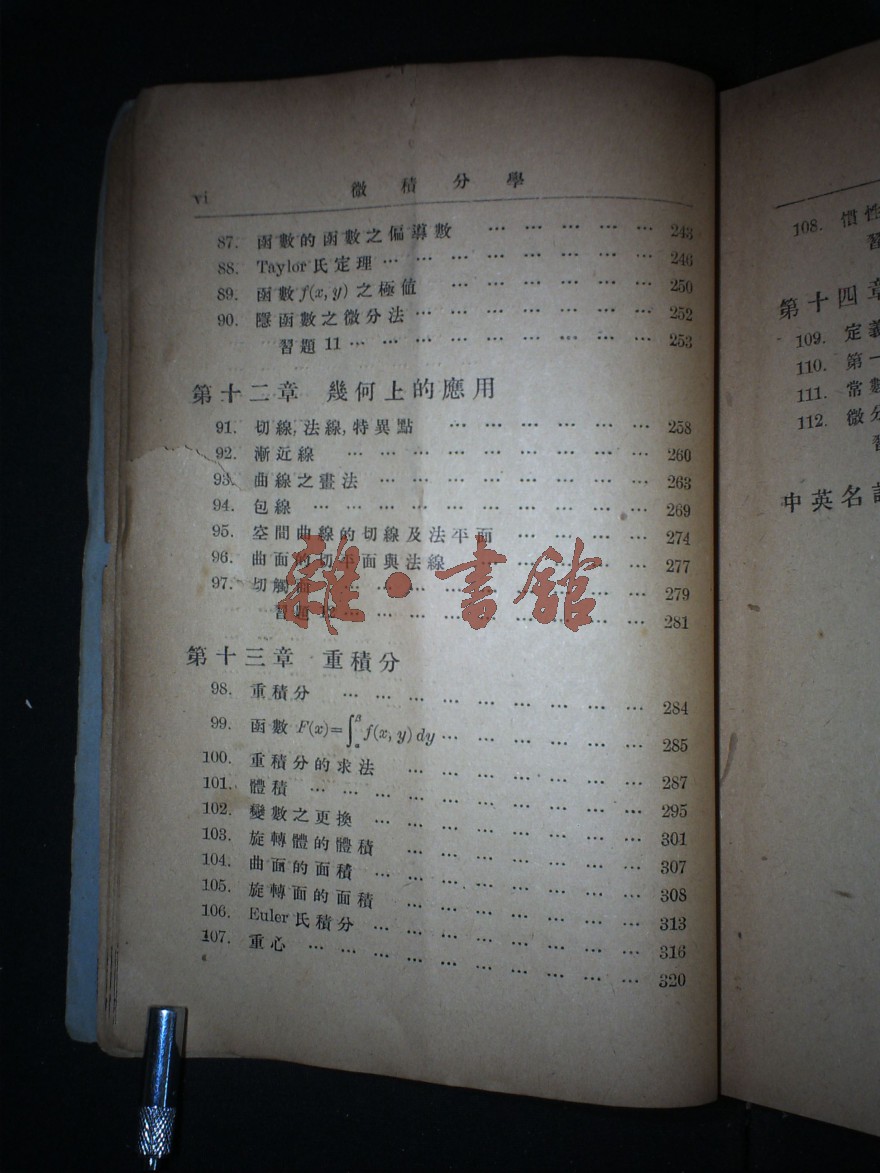 vi 微積分學
87. 函數的函數之偏導數 … … … … … … 243
88. Taylor氏定理 … … … … … … … … … 246
89. 函數 f(x, y) 之極值 … … … … … … … 250
90. 隱函數之微分法 … … … … … … … … 252
習題 11 … … … … … … … … … … 253
第十二章 幾何上的應用
91. 切線,法線,特異點 … … … … … … … 258
92. 漸近線 … … … … … … … … … … 260
93. 曲線之畫法 … … … … … … … … … 263
94. 包線 … … … … … … … … … … … 269
95. 空間曲線的切線及法平面 … … … … … 274
96. 曲面的切平面與法線 … … … … … … 277
97. 切觸面 … … … … … … … … … … 279
習題 12 … … … … … … … … … … 281
第十三章 重積分
98. 重積分 … … … … … … … … … … 284
99. 函數 F(x)=∫ f(x, y) dy … … … … … … … 285
100. 重積分的求法 … … … … … … … … 287
101. 體積 … … … … … … … … … … … 295
102. 變數之更換 … … … … … … … … … 301
103. 旋轉體的體積 … … … … … … … … 307
104. 曲面的面積 … … … … … … … … … 308
105. 旋轉面的面積 … … … … … … … … 313
106. Euler 氏積分 … … … … … … … … … 316
107. 重心 … … … … … … … … … … … 320
雜·書館
108. 慣性
習
第十四章
109. 定義
110. 第一
111. 常數
112. 微分
習
中英名